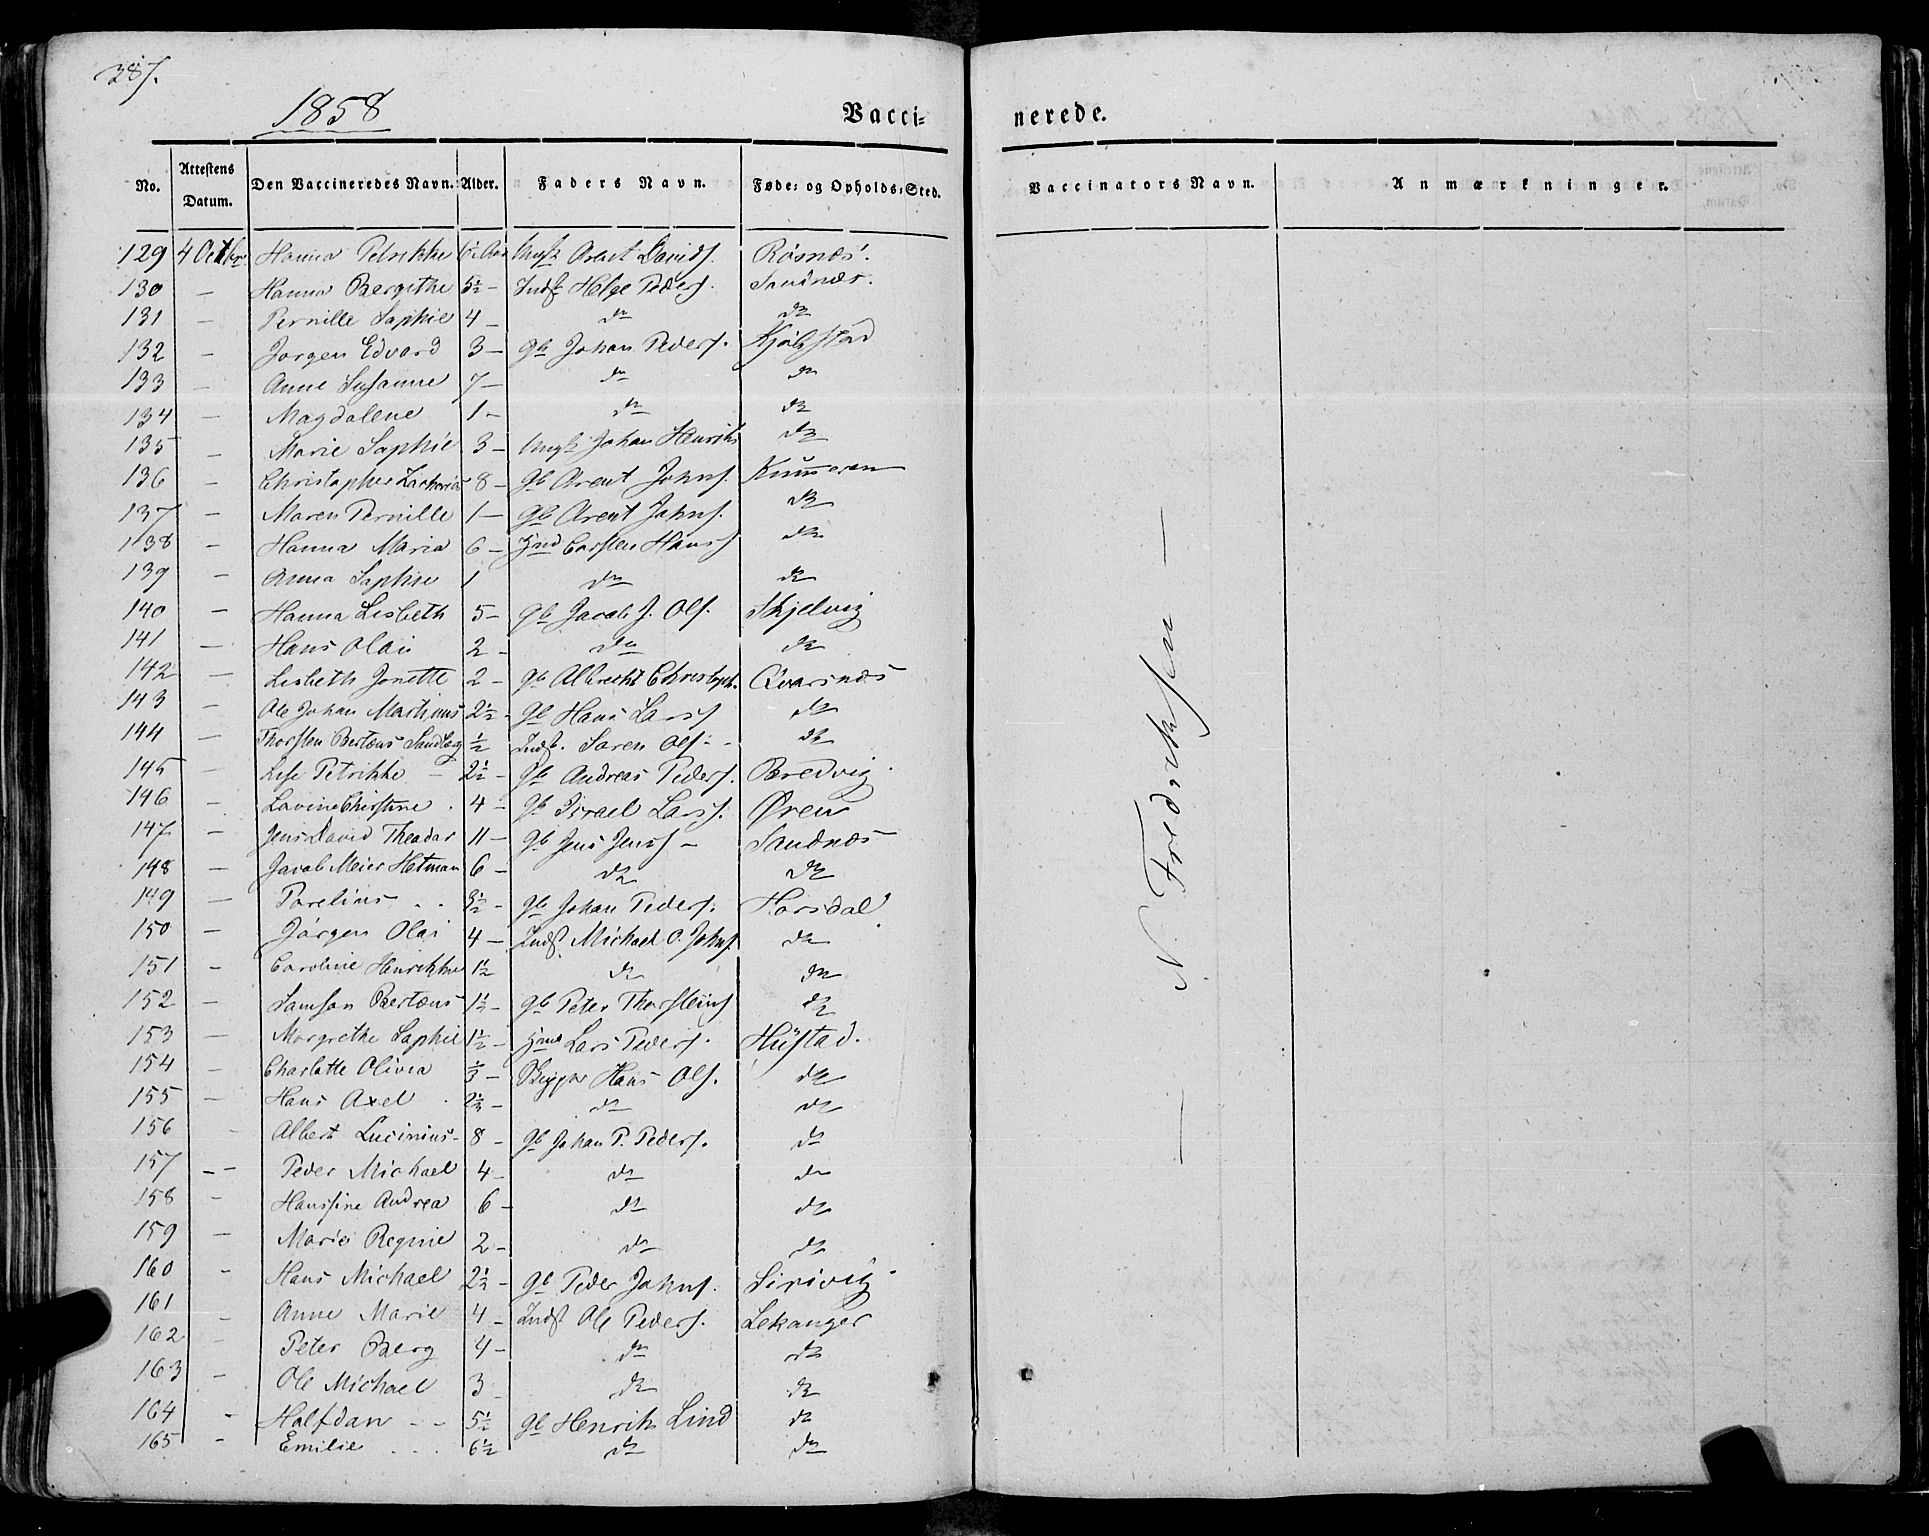 387.
1858
Vacci- nerede.
No. Attestens Datum. Den Vaccineredes Navn. Alder. Faders Navn. Føde- og Opholds-Sted. Vaccinators Navn. Anmærkninger.
129 4 Octbr Hanna Petrikke 6 Aar Arent Davids. Røsnæs.
130 — Hanna Bergithe 5½ — Indst Helge Peders. Sandnæs.
131 — Pernille Sophie 4 — do do
132 — Jørgen Edvard 3 — gb Johan Peders. Kjølsstad
133 — Anne Susanne 7 — do do
134 — Magdalene 1 — do do
135 — Marie Sophie 3 — Johan Henriks do
136 — Christopher Zacharias 8 — gb Arent Johns. Kummeren
137 — Maren Pernille 1 — gb Arent Johns. do
138 — Hanna Maria 6 — Hmd Carsten Hanss do
139 — Anna Sophie 1 do do
140 — Hanna Lisbeth 5 — gb Jacob J. Ols. Skjelvig
141 — Hans Olai 2 — do do
142 — Lisbeth Jonette 2 — gb Albrecht Christoph. Qvarsnæs
143 — Ole Johan Martinus 2½ — gb Hans Larss do
144 — Thorsten Bertæus Sandberg ½ Indst. Søren Ols — do
145 — Lise Petrikke — 2½ — gb Andreas Peders. Bredvig
146 — Lovine Christine . 4 — gb Israel Larss. Øren
147 — Jens David Theodor 11 — gb Jens Jenss — Sandnæs
148 — Jacob Meier Hetman 6 — do do
149 — Parelius . . 3½ — gb Johan Peders. Horsdal
150 — Jørgen Olai 4 — Indst. Michael O. Johns. do
151 — Caroline Henrikke 1½ do do
152 — Samson Bertæus 1½ — gb Peter Thorsteins do
153 — Margrethe Sophie 1½ — Hmd Lars Peders. Hustad.
154 — Charlotte Olivia ⅓ — Skipper Hans Ols. do
155 — Hans Axel . 2½ — do do
156 — Albert Lucinius — 8 — gb Johan P. Peders. do
157 — — Peder Michael 4 — do do
158 — Hanssine Andrea 6 — do do
159 — Marie Regine 2 — do do
160 — Hans Michael 2½ — gb Peder Johns. Sirivig
161 — Anne Marie 4 — Indst Ole Peders. Lekanger
162 Peter Berg 4 — do do
163 — Ole Michael 3 — do do
164 — Halfdan — — 5½ gb Henrik Lind do
165 — Emilie . . . 6½ do do
— N. Fredriksen —